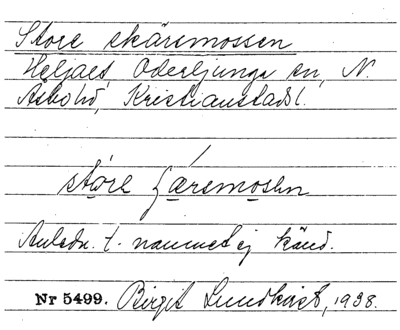 Store skärsmossen
Heljaes, Oderljunga sn, N.
Åsbo hd, Kristianstads l.
störe ʃærsmosen
Anledn. t. namnet ej känd.
Nr 5499. Birgit Lundkvist, 1938.